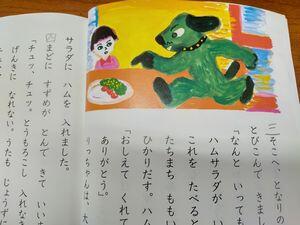 三 そこへ となりの
とびこんで きまし
「なんと いっても
ハムサラダが
これを たべると
たちまち ももい
ひかりだす。ハム
「おしえて くれて
ありがとう。
りっちゃんは、大
サラダに ハムを 入れました。
四 まどに すずめが とんで きて いい
「チュッ、チュッ。とうもろこし 入れな
げんきに なれない。うたも じょうずに